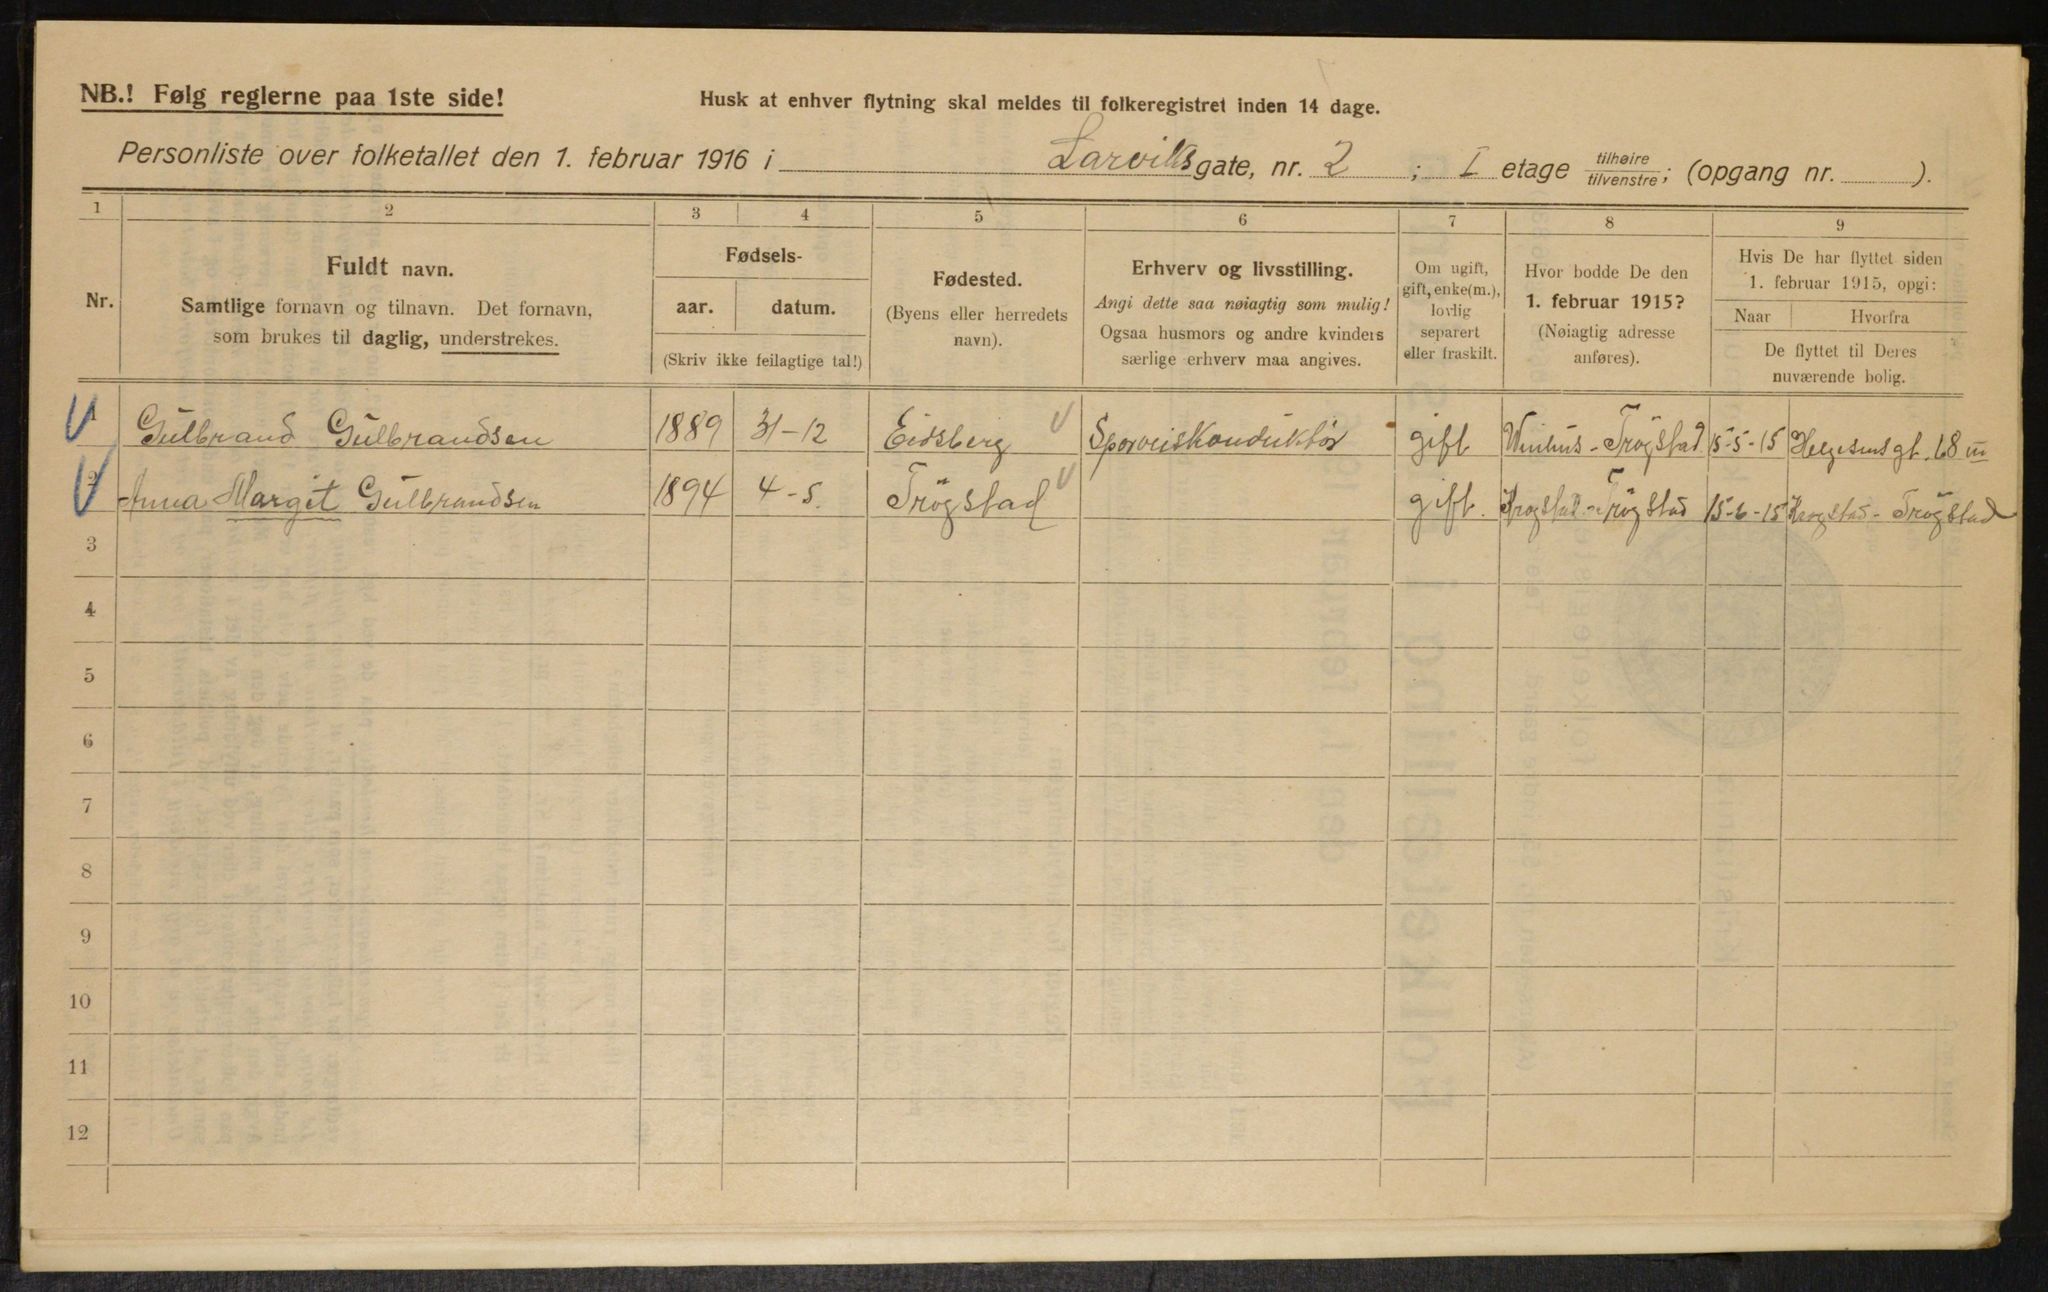 NB.! Følg reglerne paa 1ste side!
Husk at enhver flytning skal meldes til folkeregistret inden 14 dage.
Personliste over folketallet den 1. februar 1916 i Larviksgate, nr. 2 ; I etage tilhøire/tilvenstre; (opgang nr. ).
1 2 3 4 5 6 7 8 9
Nr.
Fuldt navn.
Samtlige fornavn og tilnavn. Det fornavn,
som brukes til daglig, understrekes.
Fødsels-
aar. datum.
(Skriv ikke feilagtige tal!)
Fødested.
(Byens eller herredets
navn).
Erhverv og livsstilling.
Angi dette saa nøiagtig som mulig!
Ogsaa husmors og andre kvinders
særlige erhverv maa angives.
Om ugift,
gift, enke(m.),
lovlig
separert
eller fraskilt.
Hvor bodde De den
1. februar 1915?
(Nøiagtig adresse
anføres).
Hvis De har flyttet siden
1. februar 1915, opgi:
Naar Hvorfra
De flyttet til Deres
nuværende bolig.
1 Gulbrand Gulbrandsen 1889 31-12 Eidsberg Sporveiskonduktør gift - Trögstad 15-5-15 Helgesens gt. 68 III
2 Anna Margit Gulbrandsen 1894 4-5. Trögstad gift. Krogstad - Trögstad 15-6-15 Krogstad - Trögstad
3
4
5
6
7
8
9
10
11
12